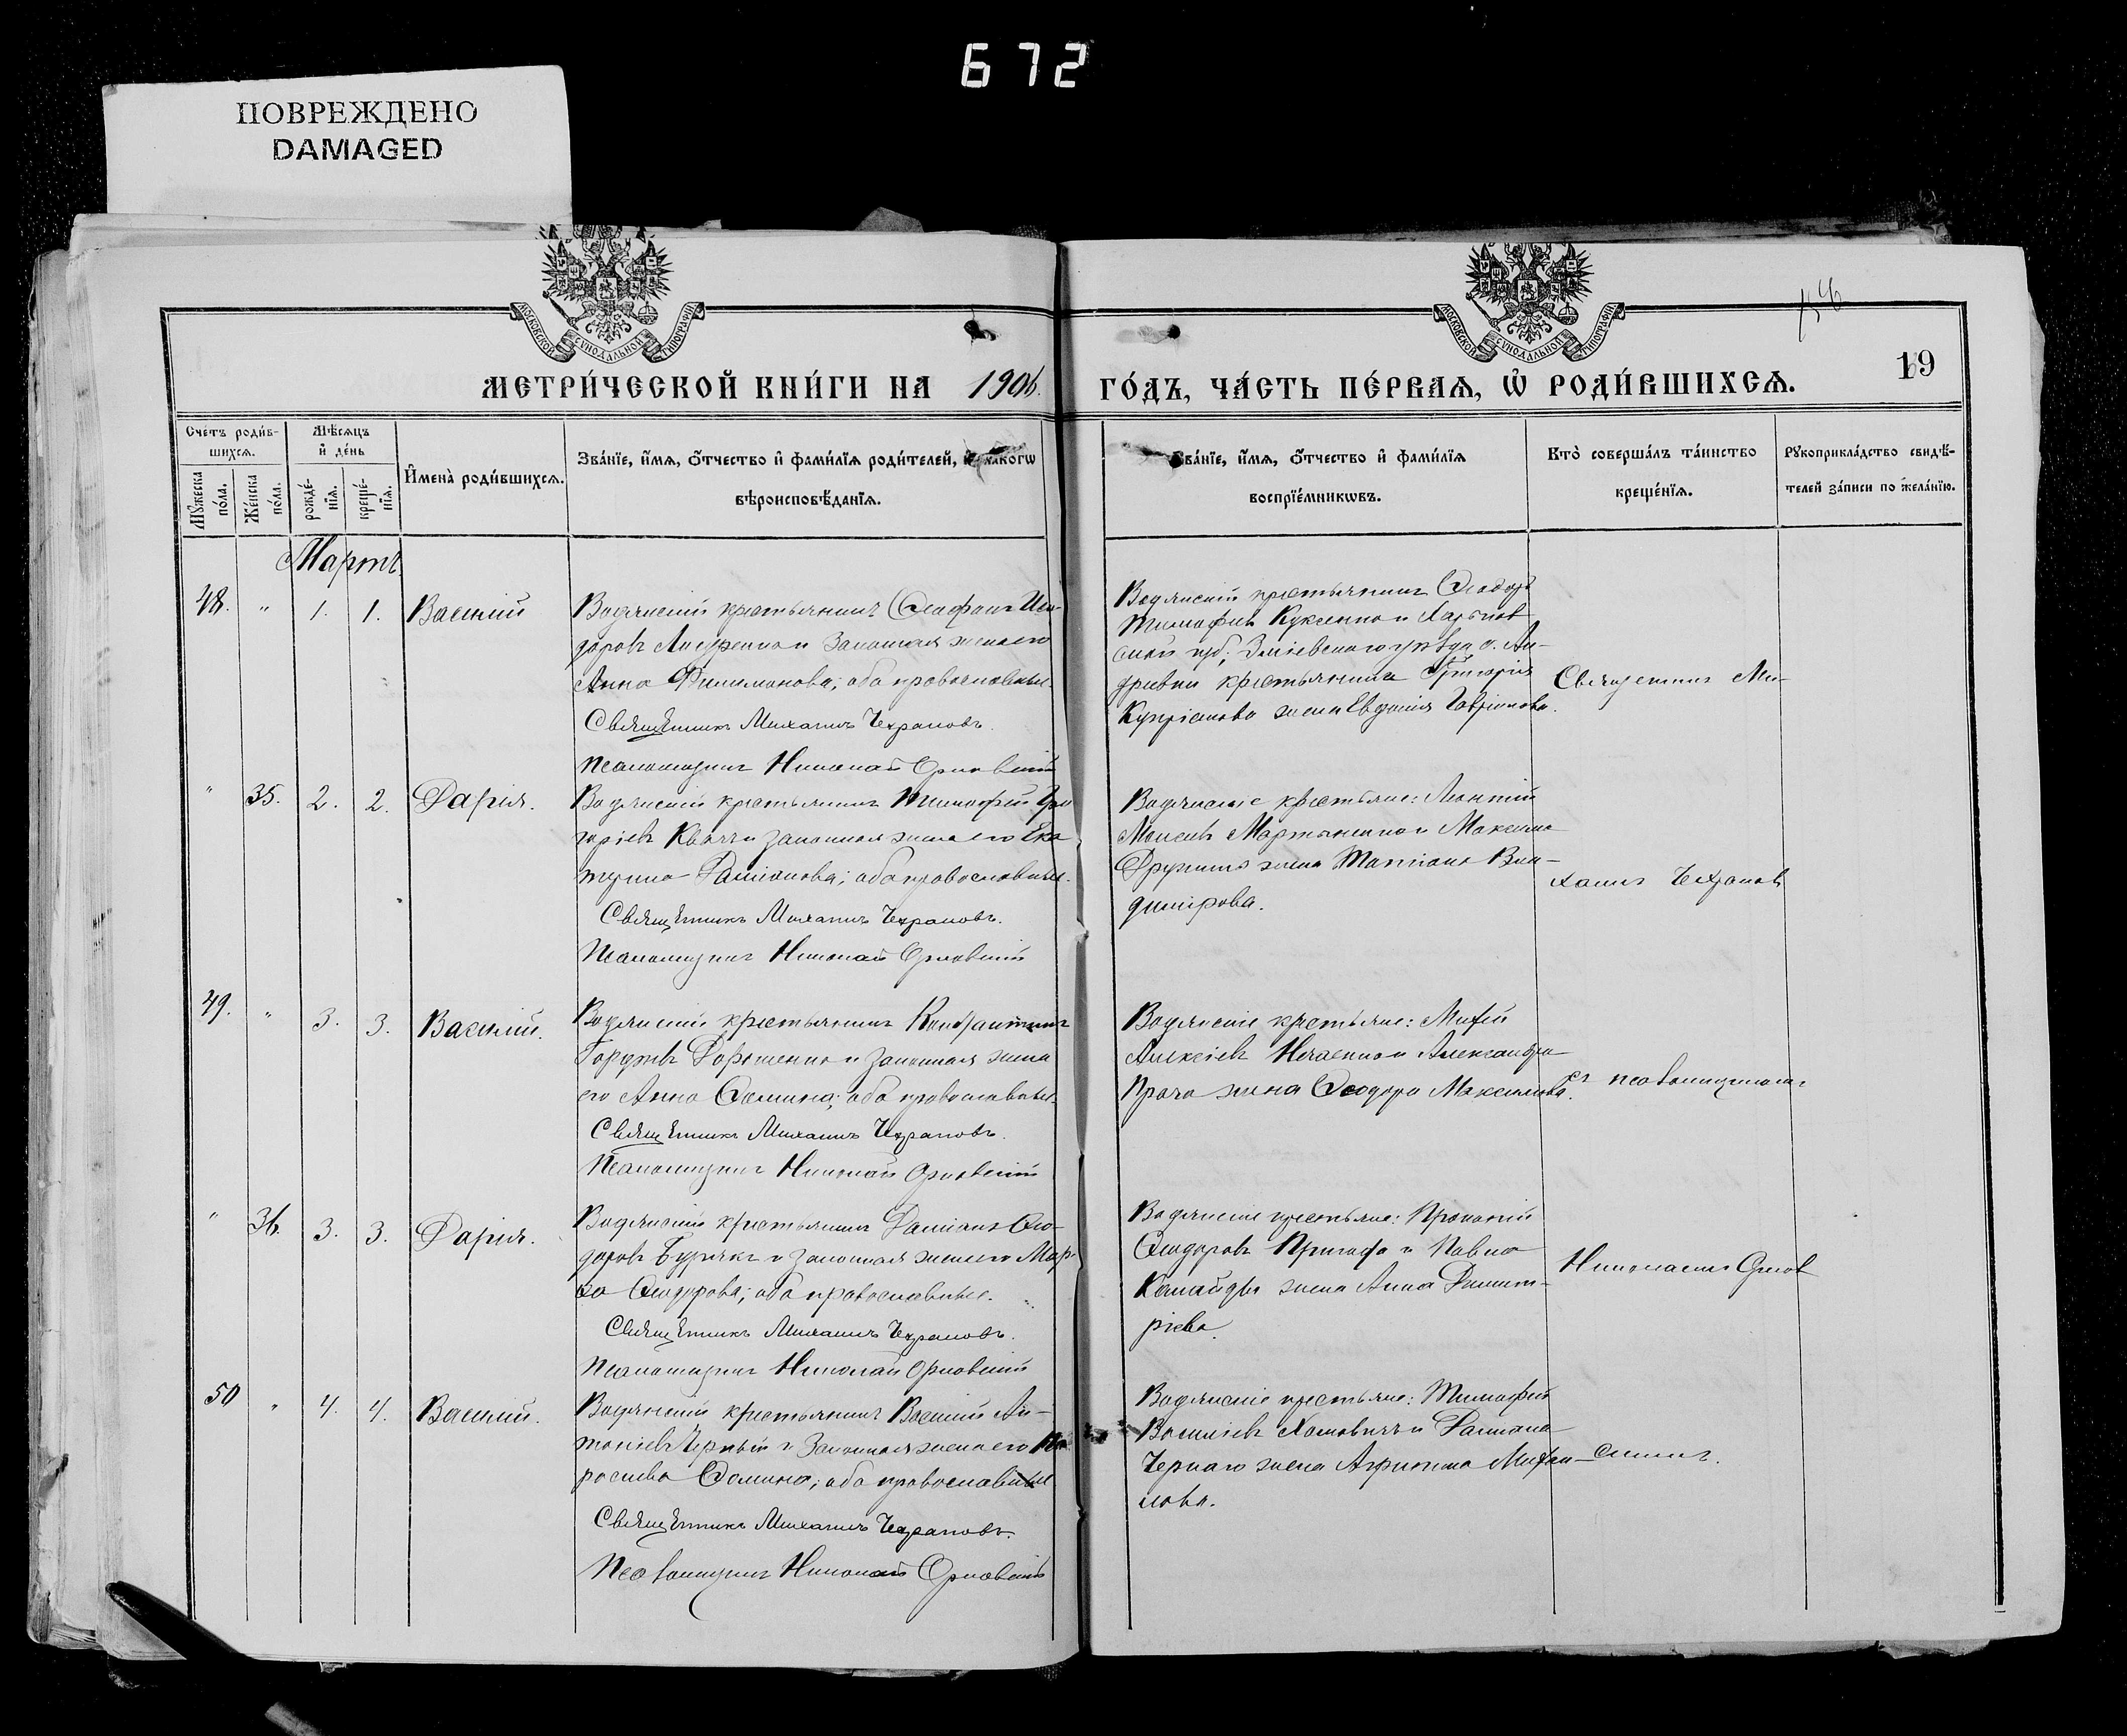 672
ПОВРЕЖДЕНО
DAMAGED
МОСКОВСКОЙ СѴНОДАЛЬНОЙ ТИПОГРАФІИ
МОСКОВСКОЙ СѴНОДАЛЬНОЙ ТИПОГРАФІИ
19
МЕТРИ́ЧЕСКОЙ КНИ́ГИ НА 1906. ГО́ДЪ, ЧА́СТЬ ПЕ́РВАѦ, Ѡ҆ РОДИ́ВШИХСѦ.
Сче́тъ роди́в-
шихсѧ.
Мꙋ́жеска по́ла.
Же́нска по́ла.
Мѣ́сѧцъ
и҆ де́нь
рожде́-
нїѧ.
креще́-
нїѧ.
И҆мена̀ роди́вшихсѧ.
Зва́нїе, и҆́мѧ, о҆́тчество и҆ фами́лїѧ роди́телей, и҆ како́гѡ
вѣроисповѣ́данїѧ.
Зва́нїе, и҆́мѧ, о҆́тчество и҆ фами́лїѧ
воспрїе́мникѡвъ.
Кто̀ соверша́лъ та́инство
креще́нїѧ.
Рꙋкоприкла́дство свидѣ́-
телей за́писи по жела́нїю.
Мартъ.
48. " 1. 1. Василій
Водянскій крестьянинъ Стефанъ Иси-
доровъ и законная жена его
Анна Филимонова; оба православные.
Священникъ Михаилъ Чехрановъ.
Псаломщикъ Николай Орловскій
Водянскій крестьянинъ Ѳеодоръ
Тимофеевъ Куксенко и Харьков
ской губ; Зміевскаго уѣзда с. Ан-
дреевки крестьянина Григорія
Купріянова жена Евдокія
" 35. 2. 2. Дарія.
Водянскій крестьянинъ Тимофей Гри
горіевъ Квачъ и законная жена его Ека
терина Даміанова; оба православные.
Священникъ Михаилъ Чехрановъ.
Псаломщикъ Николай Орловскій
Водянскіе крестьяне: Леонтій
Моисеевъ Мартыненко и Максима
жена Татіана Вла-
димірова.
49. " 3. 3. Василій.
Водянскій крестьянинъ Константинъ
Гордѣевъ Дорошенко и законная жена
его Анна Ѳомина; оба православные.
Священникъ Михаилъ Чехрановъ.
Псаломщикъ Николай Орловскій
Водянскіе крестьяне:
Алексіевъ Нечаенко и Александра
Прача жена Ѳеодора Максимова.
" 36. 3. 3. Дарія.
Водянскій крестьянинъ Даміанъ Ѳео-
доровъ Бурякъ и законная жена его Мар-
ѳа Ѳеодорова; оба православные.
Священникъ Михаилъ Чехрановъ.
Псаломщикъ Николай Орловскій
Водянскіе крестьяне: Прокопій
Ѳеодоровъ и Павла
жена Анна Димит-
ріева.
50 " 4. 4. Василій.
Водянскій крестьянинъ Василій Ан-
тоніевъ Черный и законная жена его Па
раскева Ѳомина; оба православные
Священникъ Михаилъ Чехрановъ.
Псаломщикъ Николай Орловскій
Водянскіе крестьяне: Тимофей
Василіевъ Хомовичъ и Даміана
Чернаго жена Агрипина Михаи-
лова.
Священникъ Ми-
хаилъ Чехрановъ
съ псаломщикомъ
Николаемъ Орлов
скимъ.